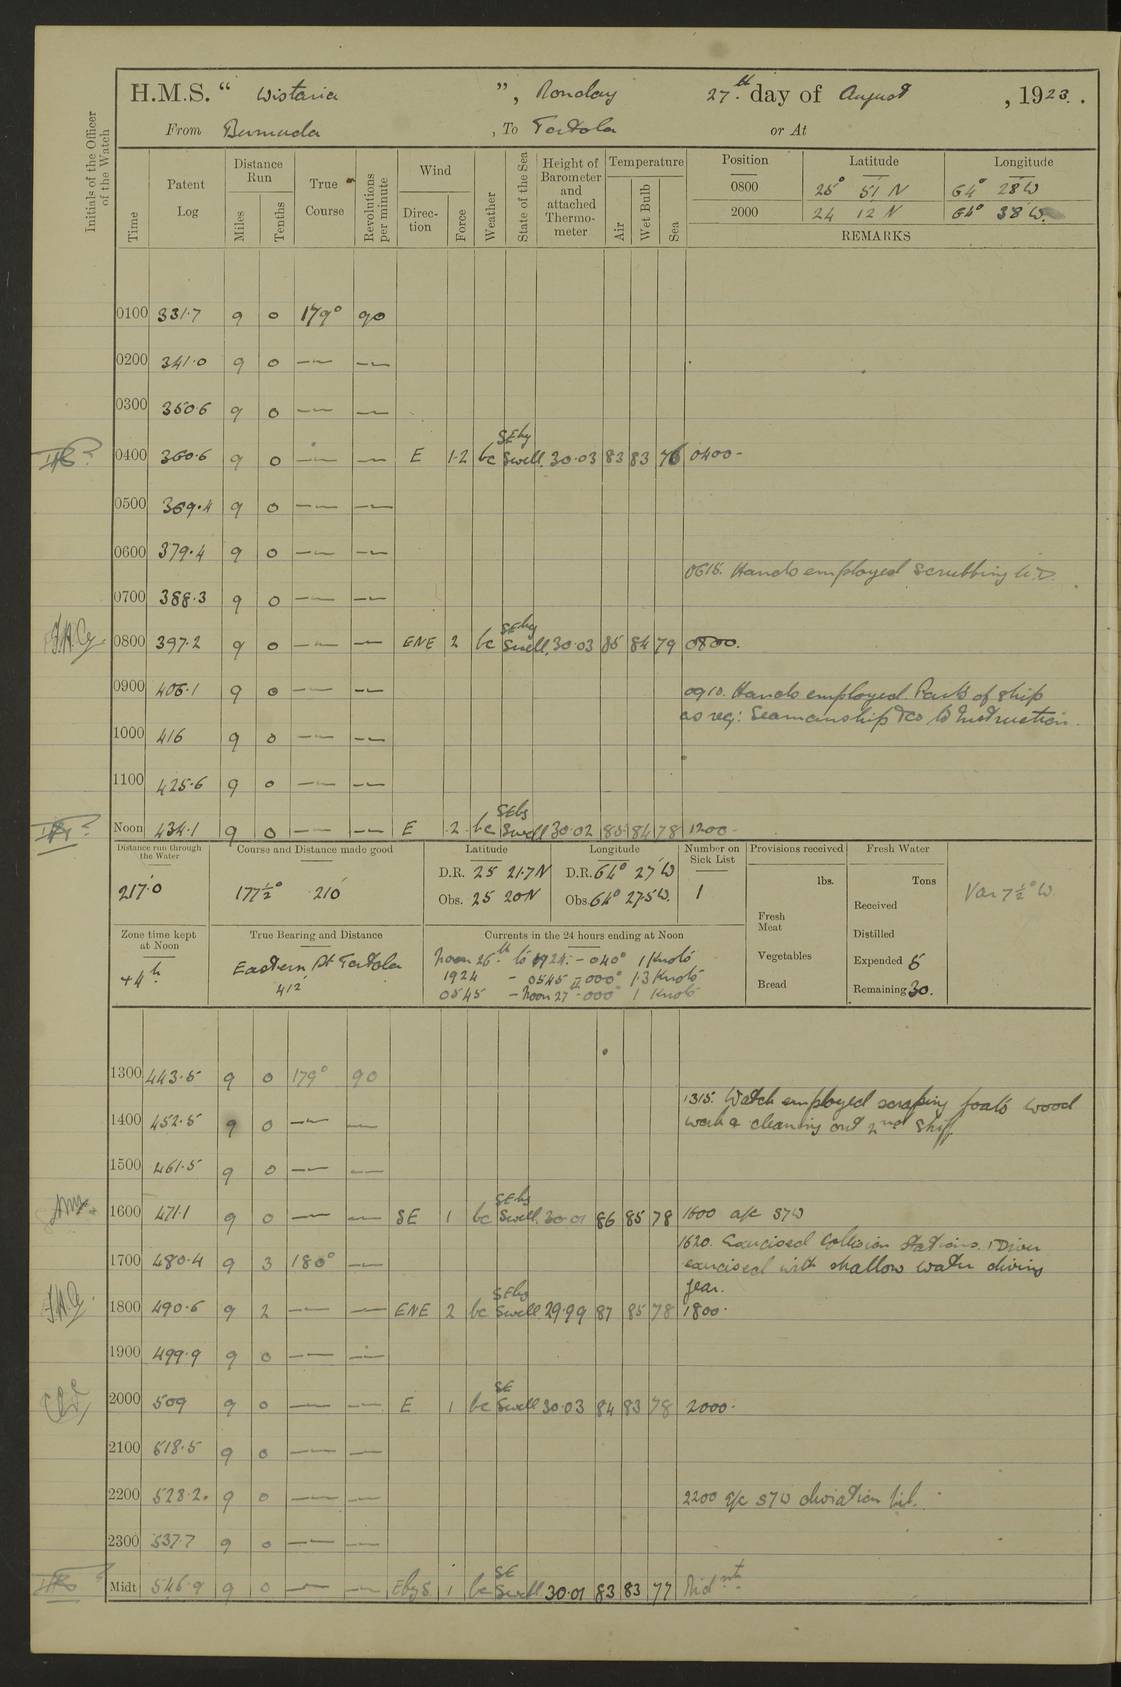 H.M.S. “ Wistaria ”, Monday 27th day of August, 1923.
From Bermuda, To Tortola or At
Initials of the Officer of the Watch
Time Patent Log Distance Run Miles Tenths True Course Revolutions per minute Wind Direction Force Weather State of the Sea Height of Barometer and attached Thermometer Temperature Air Wet Bulb Sea
Position Latitude Longitude
0800 25° 51 N 64° 28' W
2000 24 12 N 64° 38' W.
REMARKS
0100 331.7 9 0 179° 90
0200 341.0 9 0 — —
0300 350.6 9 0 — —
0400 360.6 9 0 — — E 1.2 bc SEly Swell. 30.03 83 83 76 0400 -
0500 369.4 9 0 — —
0600 379.4 9 0 — —
0615. Hands employed scrubbing
0700 388.3 9 0 — —
0800 397.2 9 0 — — ENE 2 bc SEly Swell. 30.03 85 84 79 0800.
0900 406.1 9 0 — — 0910. Hands employed. Parts of ship
as req: Seamanship Instruction.
1000 416 9 0 — —
1100 425.6 9 0 — —
Noon 434.1 9 0 — — E 2 bc SEly Swell 30.02 85 84 78 1200 -
Distance run through the Water 217.0
Course and Distance made good 177½° 210'
Latitude D.R. 25 21.7 N Obs. 25 20 N
Longitude D.R. 64° 27' W Obs. 64° 27.5 W.
Number on Sick List 1
Provisions received lbs.
Fresh Meat
Vegetables
Bread
Fresh Water Tons
Received
Distilled
Expended 5
Remaining 30.
Var 7½° W
Zone time kept at Noon +4h
True Bearing and Distance Eastern Pt Tortola 412'
Currents in the 24 hours ending at Noon
Noon 26th to 1924: - 040° 1 Knots
1924 - 0545 - 000° 1.3 Knots
0545 - Noon 27th - 000° 1 Knots
1300 443.5 9 0 179° 90
1315. Watch employed scraping boats wood
1400 452.5 9 0 — — work & cleaning out 2nd Skiff
1500 461.5 9 0 — —
1600 471.1 9 0 — — SE 1 bc SEly Swell. 30.01 86 85 78 1600 a/c S7W
1620. Exercised Collision Stations. 1 Diver
1700 480.4 9 3 180° — exercised with shallow water diving
gear.
1800 490.6 9 2 — — ENE 2 bc SEly Swell 29.99 87 85 78 1800.
1900 499.9 9 0 — —
2000 509 9 0 — — E 1 bc SE Swell 30.03 84 83 78 2000.
2100 518.5 9 0 — —
2200 528.2. 9 0 — — 2200 a/c S7W deviation
2300 537.7 9 0 — —
Midt 546.9 9 0 — — EbyS 1 bc SE Swell 30.01 83 83 77 Midnt.